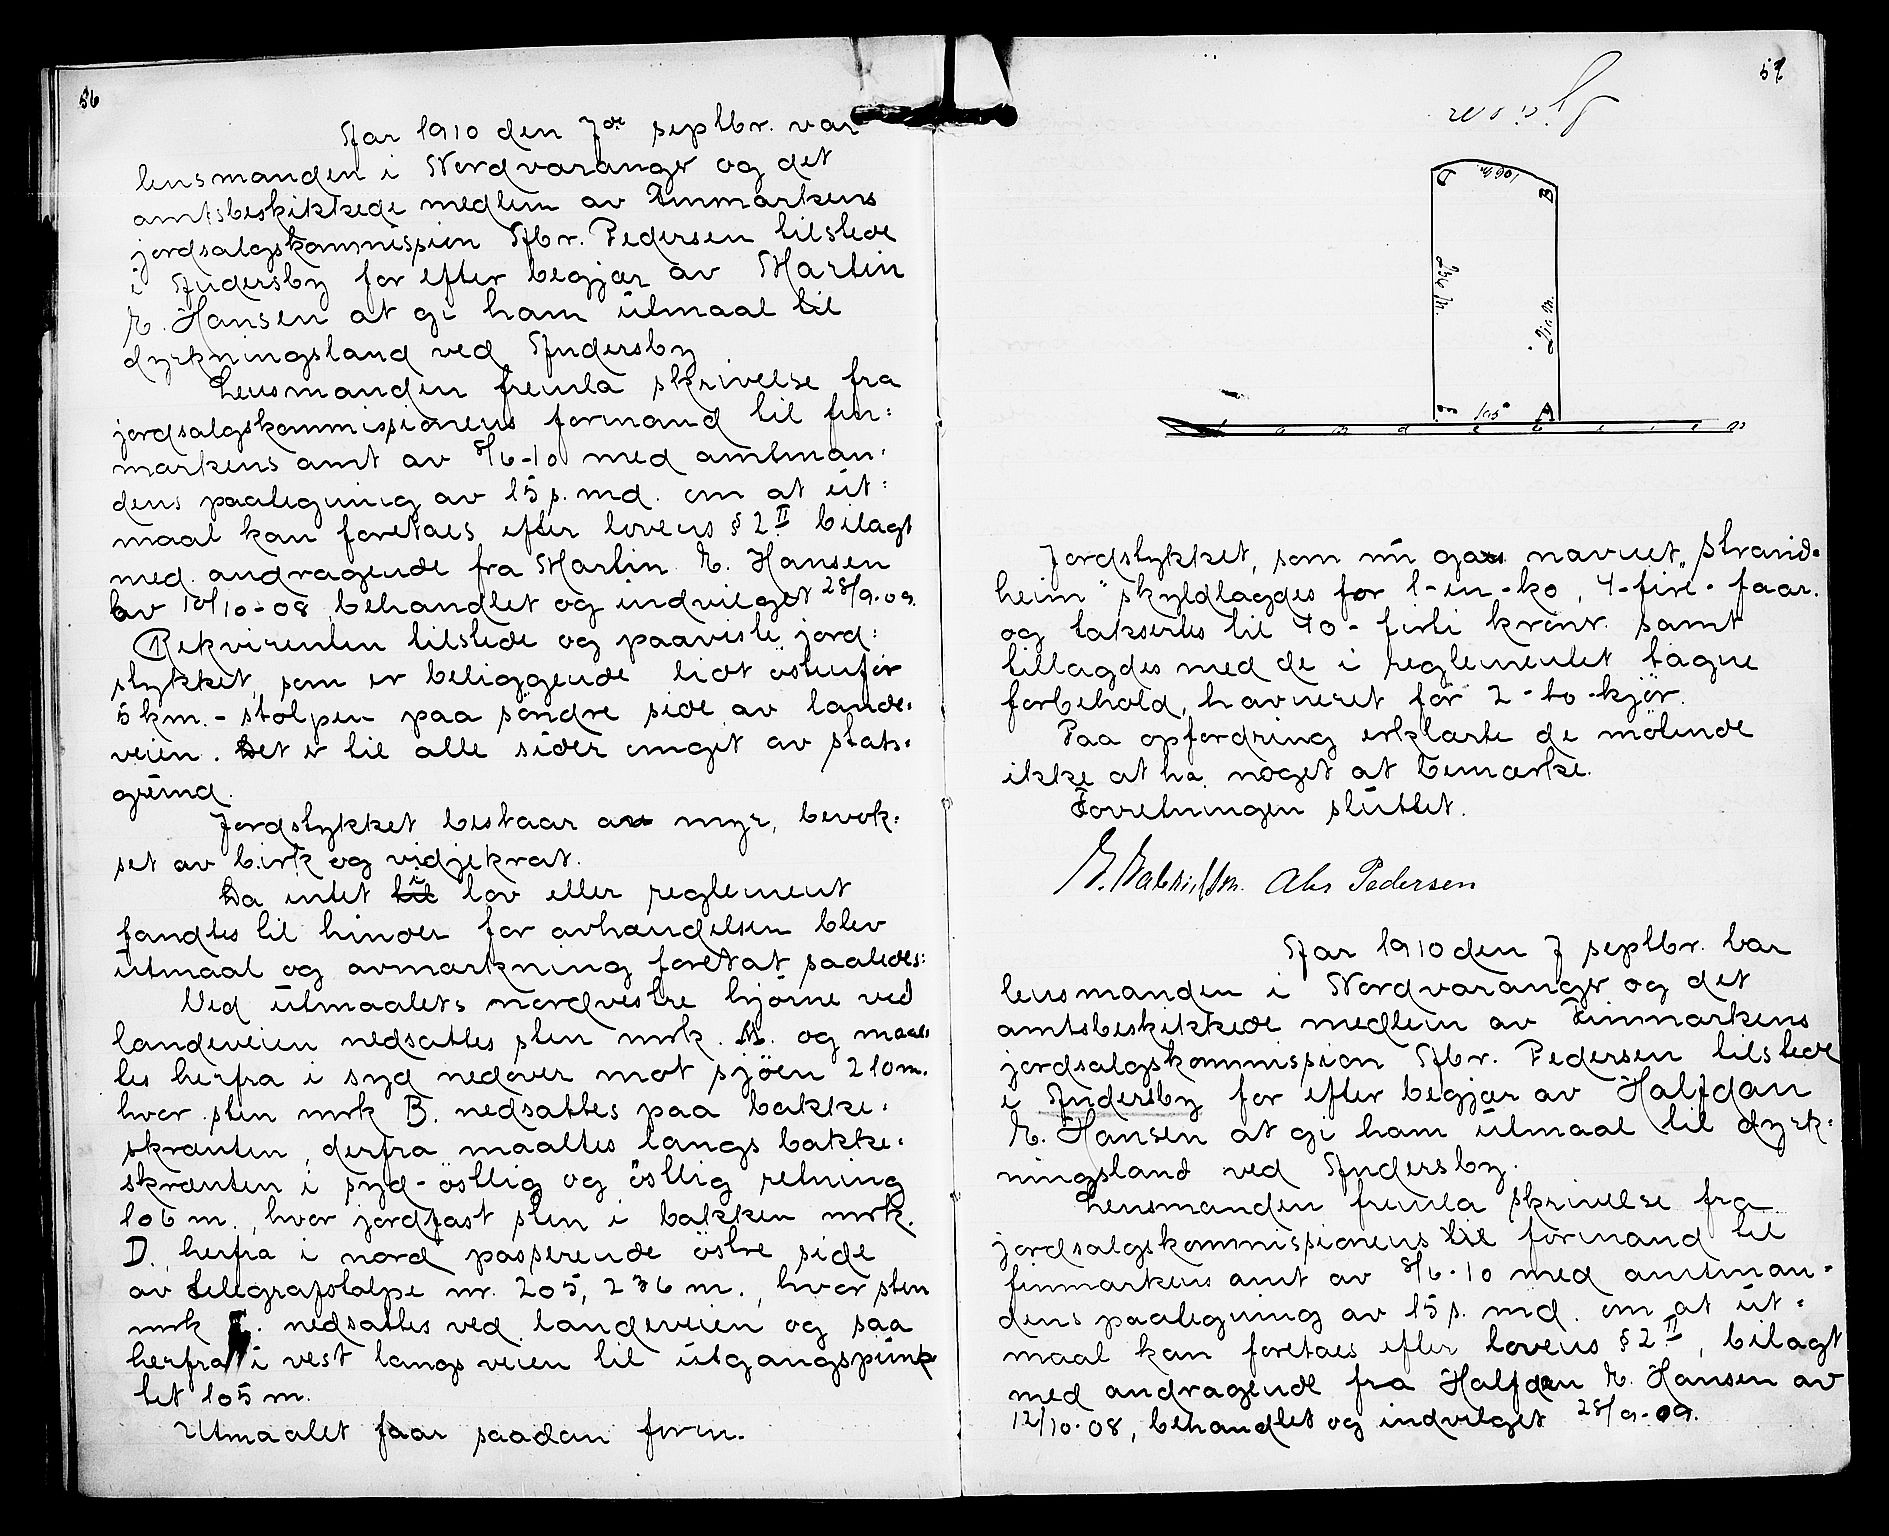 56
Aar 1910 den 7de septbr. var
lensmanden i Nordvaranger og det
amtsbeskikkede medlem av Finmarkens
jordsalgskommission Abr. Pedersen tilstede
i Andersby for efter begjær av Martin
E. Hansen at gi ham utmaal til
dyrkningsland ved Andersby
Lensmanden fremla skrivelse fra
jordsalgskommissionens formand til fin:
markens amt av 8/6-10 med amtman:
dens paategning av 15 s. md. om at ut:
maal kan foretaes efter lovens § 2 II bilagt
med andragende fra Martin E. Hansen
av 10/10-08 behandlet og indvilget 28/9-09.
Rekvirenten tilstede og paaviste jord:
stykket, som er beliggende lidt östenfor
5 km.-stolpen paa söndre side av lande:
veien. Det er til alle sider omgit av stats:
grund.
Jordstykket bestaar av myr, bevok:
set av birk og vidjekrat.
Da intet i lov eller reglement
fandtes til hinder for avhændelsen blev
utmaal og avmarkning foretat saaledes:
Ved utmaalets nordvestre hjörne ved
landeveien nedsattes sten mrk. A. og maal
tes herfra i syd nedover mot sjöen 210 m.
hvor sten mrk B. nedsattes paa bakke:
skrænten, derfra maaltes langs bakke:
skrænten i syd-östlig og östlig retning
106 m., hvor jordfast sten i bakken mrk.
D., herfra i nord passerende östre side
av telegrafstolpe nr. 205, 236 m., hvor sten
mrk nedsattes ved landeveien og saa
herfra i vest langs veien til utgangspunk
tet 105 m.
Utmaalet faar saadan form.
57
D 106 m. B
236 m. 210 m.
105 A
L a n d e v e i e n
Jordstykket, som nu gaes navnet "Strand:
heim" skyldlagdes for 1-en-ko, 4-fire-faar.
og taksertes til 40-firti kroner samt
tillagdes med de i reglementet tagne
forbehold, havneret for 2-to-kjör.
Paa opfordring erklærte de mötende
ikke at ha noget at bemærke.
Forretningen sluttet.
E. Gabrielsen. Abr Pedersen
Aar 1910 den 7 septbr. var
lensmanden i Nordvaranger og det
amtsbeskikkede medlem av Finmarkens
jordsalgskommission Abr. Pedersen tilstede
i Andersby for efter begjær av Halfdan
E. Hansen at gi ham utmaal til dyrk:
ningsland ved Andersby.
Lensmanden fremla skrivelse fra
jordsalgskommissionens til formand til
finmarkens amt av 8/6-10 med amtman:
dens paategning av 15 s. md. om at ut:
maal kan foretaes efter lovens § 2 II, bilagt
med andragende fra Halfdan E. Hansen av
12/10-08, behandlet og indvilget 28/9-09.